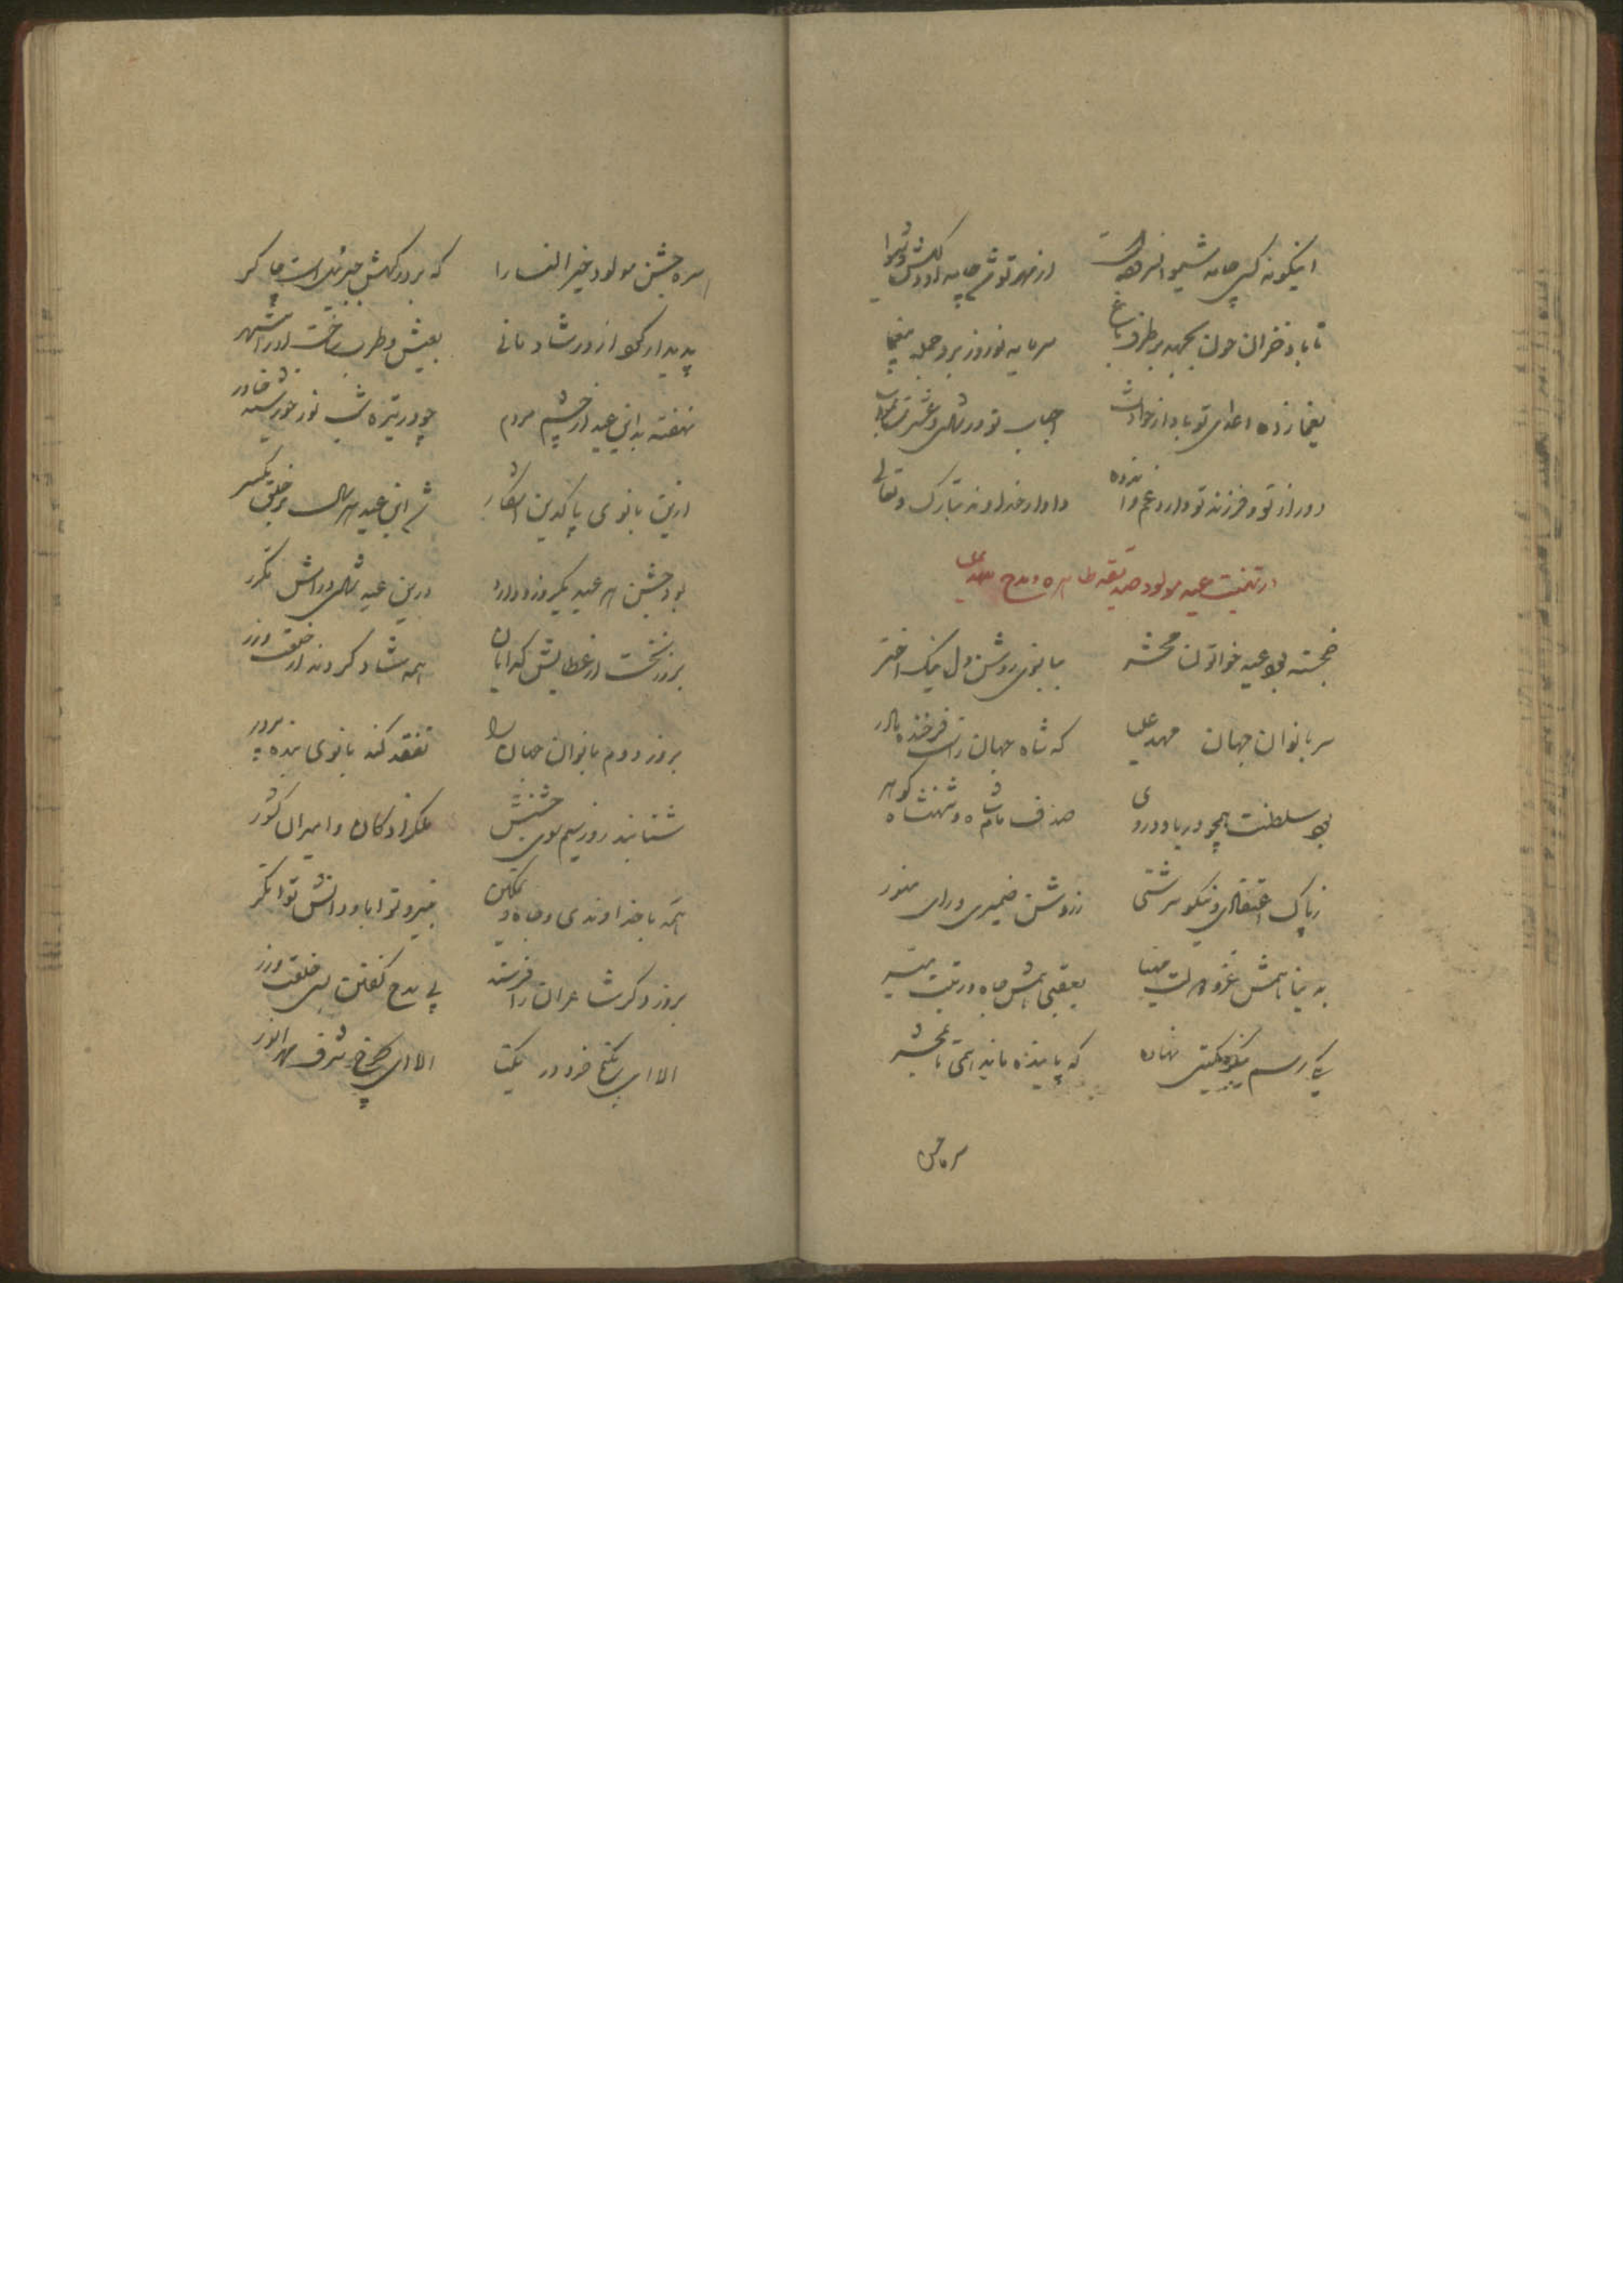 اینگونه کسی جامه شیوا
از مهر تو شد چامه او دلکش و شیوا
تا باد خزان چون بجهد بر طرف باغ
سرمایه نوروز برد جمله بیغما
یغما زده اعدای تو باد از حوادث
احباب تو در شادی و عشرت
دور از تو و فرزند تو دارد غم و انده
دادار خداوند تبارک و تعالی
در تهنیت عید مولود صدیقه طاهره و مدح مهد علیا
خجسته بود عید خاتون محشر
ببانوی روشن دل نیک اختر
سر بانوان جهان مهد علیا
که شاه جهان راست فرخنده مادر
بود سلطنت همچو دریا و در وی
صدف مام شاه و شهنشاه گوهر
ز پاک اعتقادی و نیکو سرشتی
ز روشن ضمیری و رای منور
به دنیا همش عز و دولت مهیا
بعقبی همش جاه و رتبت میسر
یکی رسم نیکو بگیتی نهاده
که پاینده ماند همی تا بمحشر
سره جشن مولود خیر النسا را
که بر درگهش جبرئیل است چاکر
پدیدار کرد از در شادمانی
بعیش و طرب ساخت او را مشهر
نهفته بد این عید از چشم مردم
چو در تیره شب نور خورشید خاور
ازین بانوی پاکدین آشکارا
شد این عید هر سال بر خلق یکسر
بود جشن هر عید یکروز و دارد
درین عید شادی و رامش مکرر
بروز نخست از عطایش گدایان
همه شاد گردند از خلعت و زر
بروز دوم بانوان جهان را
تفقد کند بانوی بنده پرور
شتابند روز سیم سوی جشنش
ملکزادگان و امیران کشور
همه با خداوندی و جاه و تمکین
بنیرو توانا و دانش توانگر
بروز دگر شاعران را فرستد
پی مدح گفتن بسی خلعت و زر
الا ای به یکتا خرد در یکتا
الا ای بچرخ شرف مهر انور